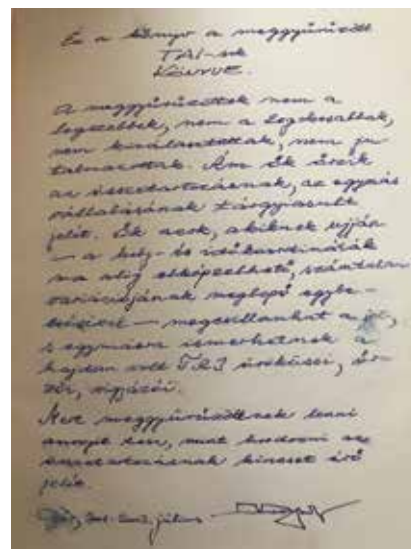 Ez a könyv a meggyűrűzött
TAI-sok
KÖNYVE.
A meggyűrűzöttek nem a
legszebbek, nem a legokosabbak,
nem kiválasztottak, nem ju-
talmazottak. Ám ők őrzik
az összetartozásnak, az egymás
vállalásának tárgyiasult
jelét. Ők azok, akiknek ujján
– a hely- és időkoordináták
ma alig elképzelhető, számtalan
variációjának meglepő egybe-
eséseként – megcsillanhat a jel,
s egymásra ismerhetnek a
hajdan volt TAI
Mert meggyűrűzöttnek lenni
annyit tesz, mint hordozni az
összetartozásnak kincset érő
jelét.
július